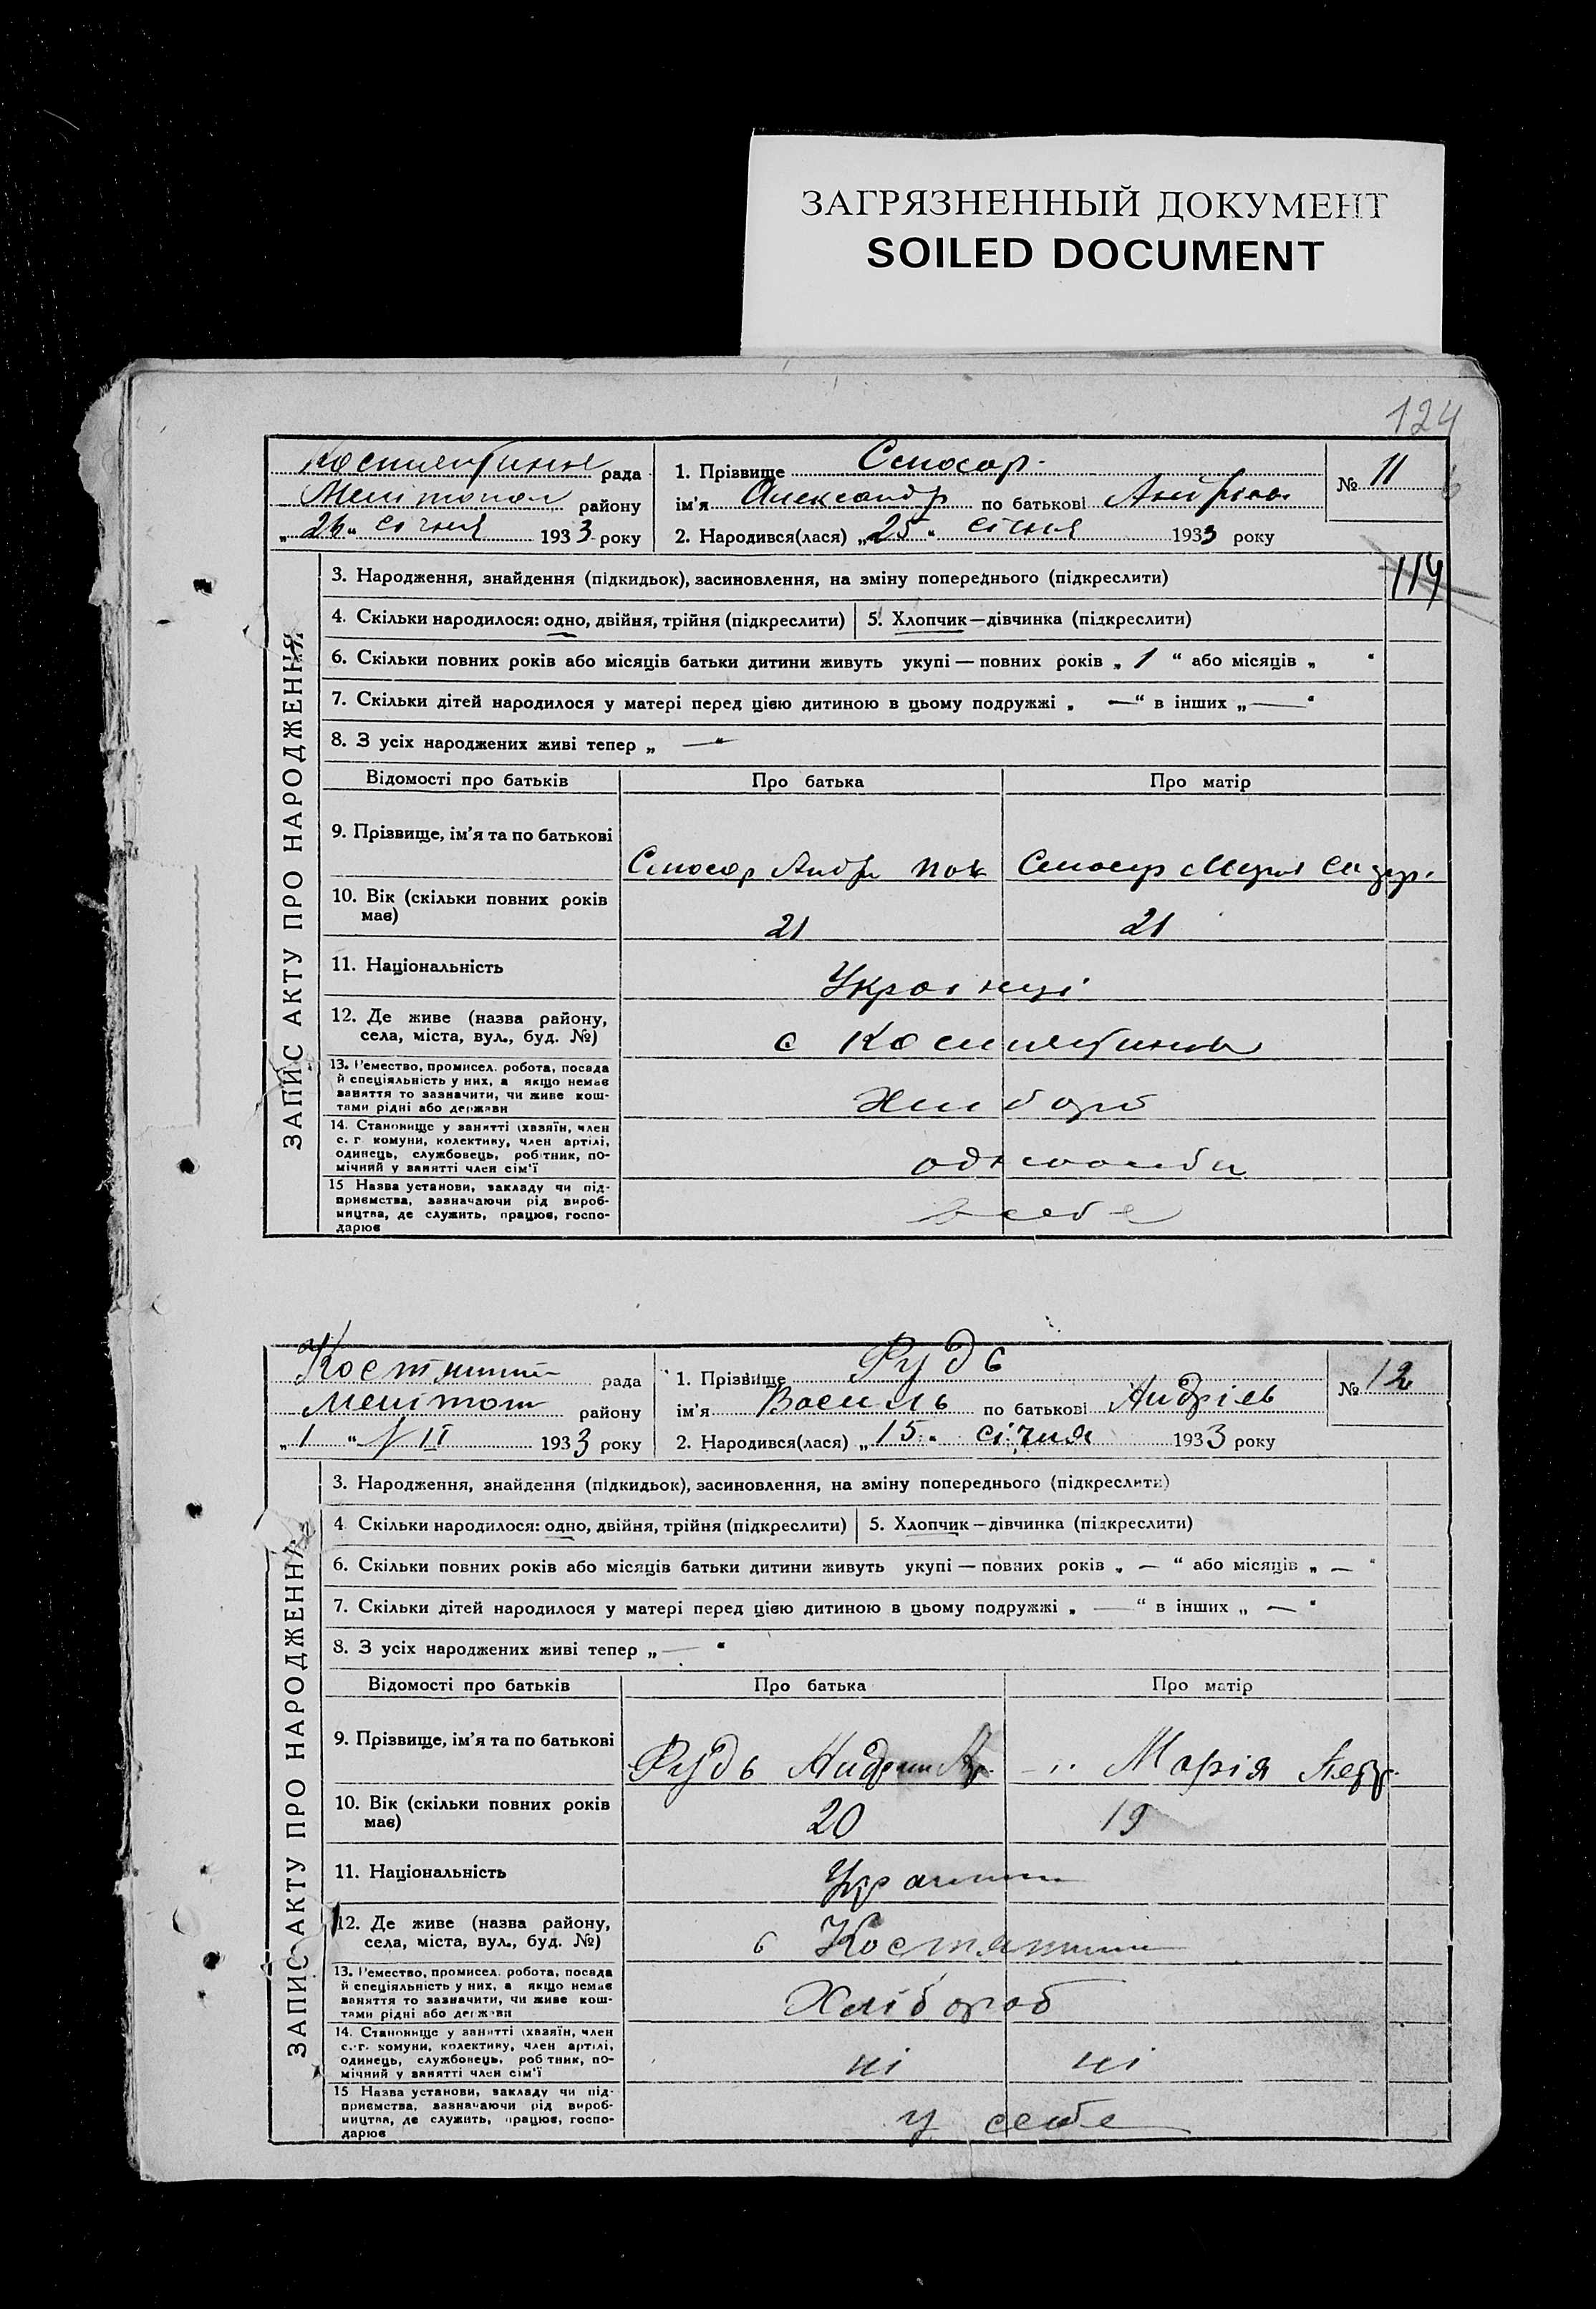 ЗАГРЯЗНЕННЫЙ ДОКУМЕНТ
SOILED DOCUMENT
124
рада
1. Прізвище
№ 11
району
ім'я Александр по батькові
„26“ січня 1933 року
2. Народився(лася) „25“ січня 1933 року
ЗАПИС АКТУ ПРО НАРОДЖЕННЯ
3. Народження, знайдення (підкидьок), засиновлення, на зміну попереднього (підкреслити)
114
4. Скільки народилося: одно, двійня, трійня (підкреслити)
5. Хлопчик—дівчинка (підкреслити)
6. Скільки повних років або місяців батьки дитини живуть укупі — повних років „ 1 “ або місяців „ “
7. Скільки дітей народилося у матері перед цією дитиною в цьому подружжі „ — “ в інших „ — “
8. З усіх народжених живі тепер „ — “
Відомості про батьків
Про батька
Про матір
9. Прізвище, ім'я та по батькові
10. Вік (скільки повних років
має)
21
21
11. Національність
Українці
12. Де живе (назва району,
села, міста, вул., буд. №)
с
13. Ремество, промисел. робота, посада
й спеціяльність у них, а якщо немає
заняття то зазначити, чи живе кош-
тами рідні або держави
14. Становище у занятті (хазяїн, член
с. г. комуни, колективу, член артілі,
одинець, службовець, робітник, по-
мічний у занятті член сім'ї
15 Назва установи, закладу чи під-
приємства, зазначаючи рід вироб-
ництва, де служить, працює, госпо-
дарює
рада
1. Прізвище Рудь
№ 12
району
ім'я Василь по батькові Андрієв
„1“ II 1933 року
2. Народився(лася) „15“ січня 1933 року
ЗАПИС АКТУ ПРО НАРОДЖЕННЯ
3. Народження, знайдення (підкидьок), засиновлення, на зміну попереднього (підкреслити)
4 Скільки народилося: одно, двійня, трійня (підкреслити)
5. Хлопчик—дівчинка (підкреслити)
6. Скільки повних років або місяців батьки дитини живуть укупі — повних років „ — “ або місяців „ — “
7. Скільки дітей народилося у матері перед цією дитиною в цьому подружжі „ — “ в інших „ — “
8. З усіх народжених живі тепер „ — “
Відомості про батьків
Про батька
Про матір
9. Прізвище, ім'я та по батькові
Рудь
Марія
10. Вік (скільки повних років
має)
20
19
11. Національність
12. Де живе (назва району,
села, міста, вул., буд. №)
13. Ремество, промисел. робота, посада
й спеціяльність у них, а якщо немає
заняття то зазначити, чи живе кош-
тами рідні або держави
Хлібороб
14. Становище у занятті (хазяїн, член
с.-г. комуни, колективу, член артілі,
одинець, службовець, робітник, по-
мічний у занятті член сім'ї
ні
ні
15 Назва установи, закладу чи під-
приємства, зазначаючи рід вироб-
ництва, де служить, працює, госпо-
дарює
у себе